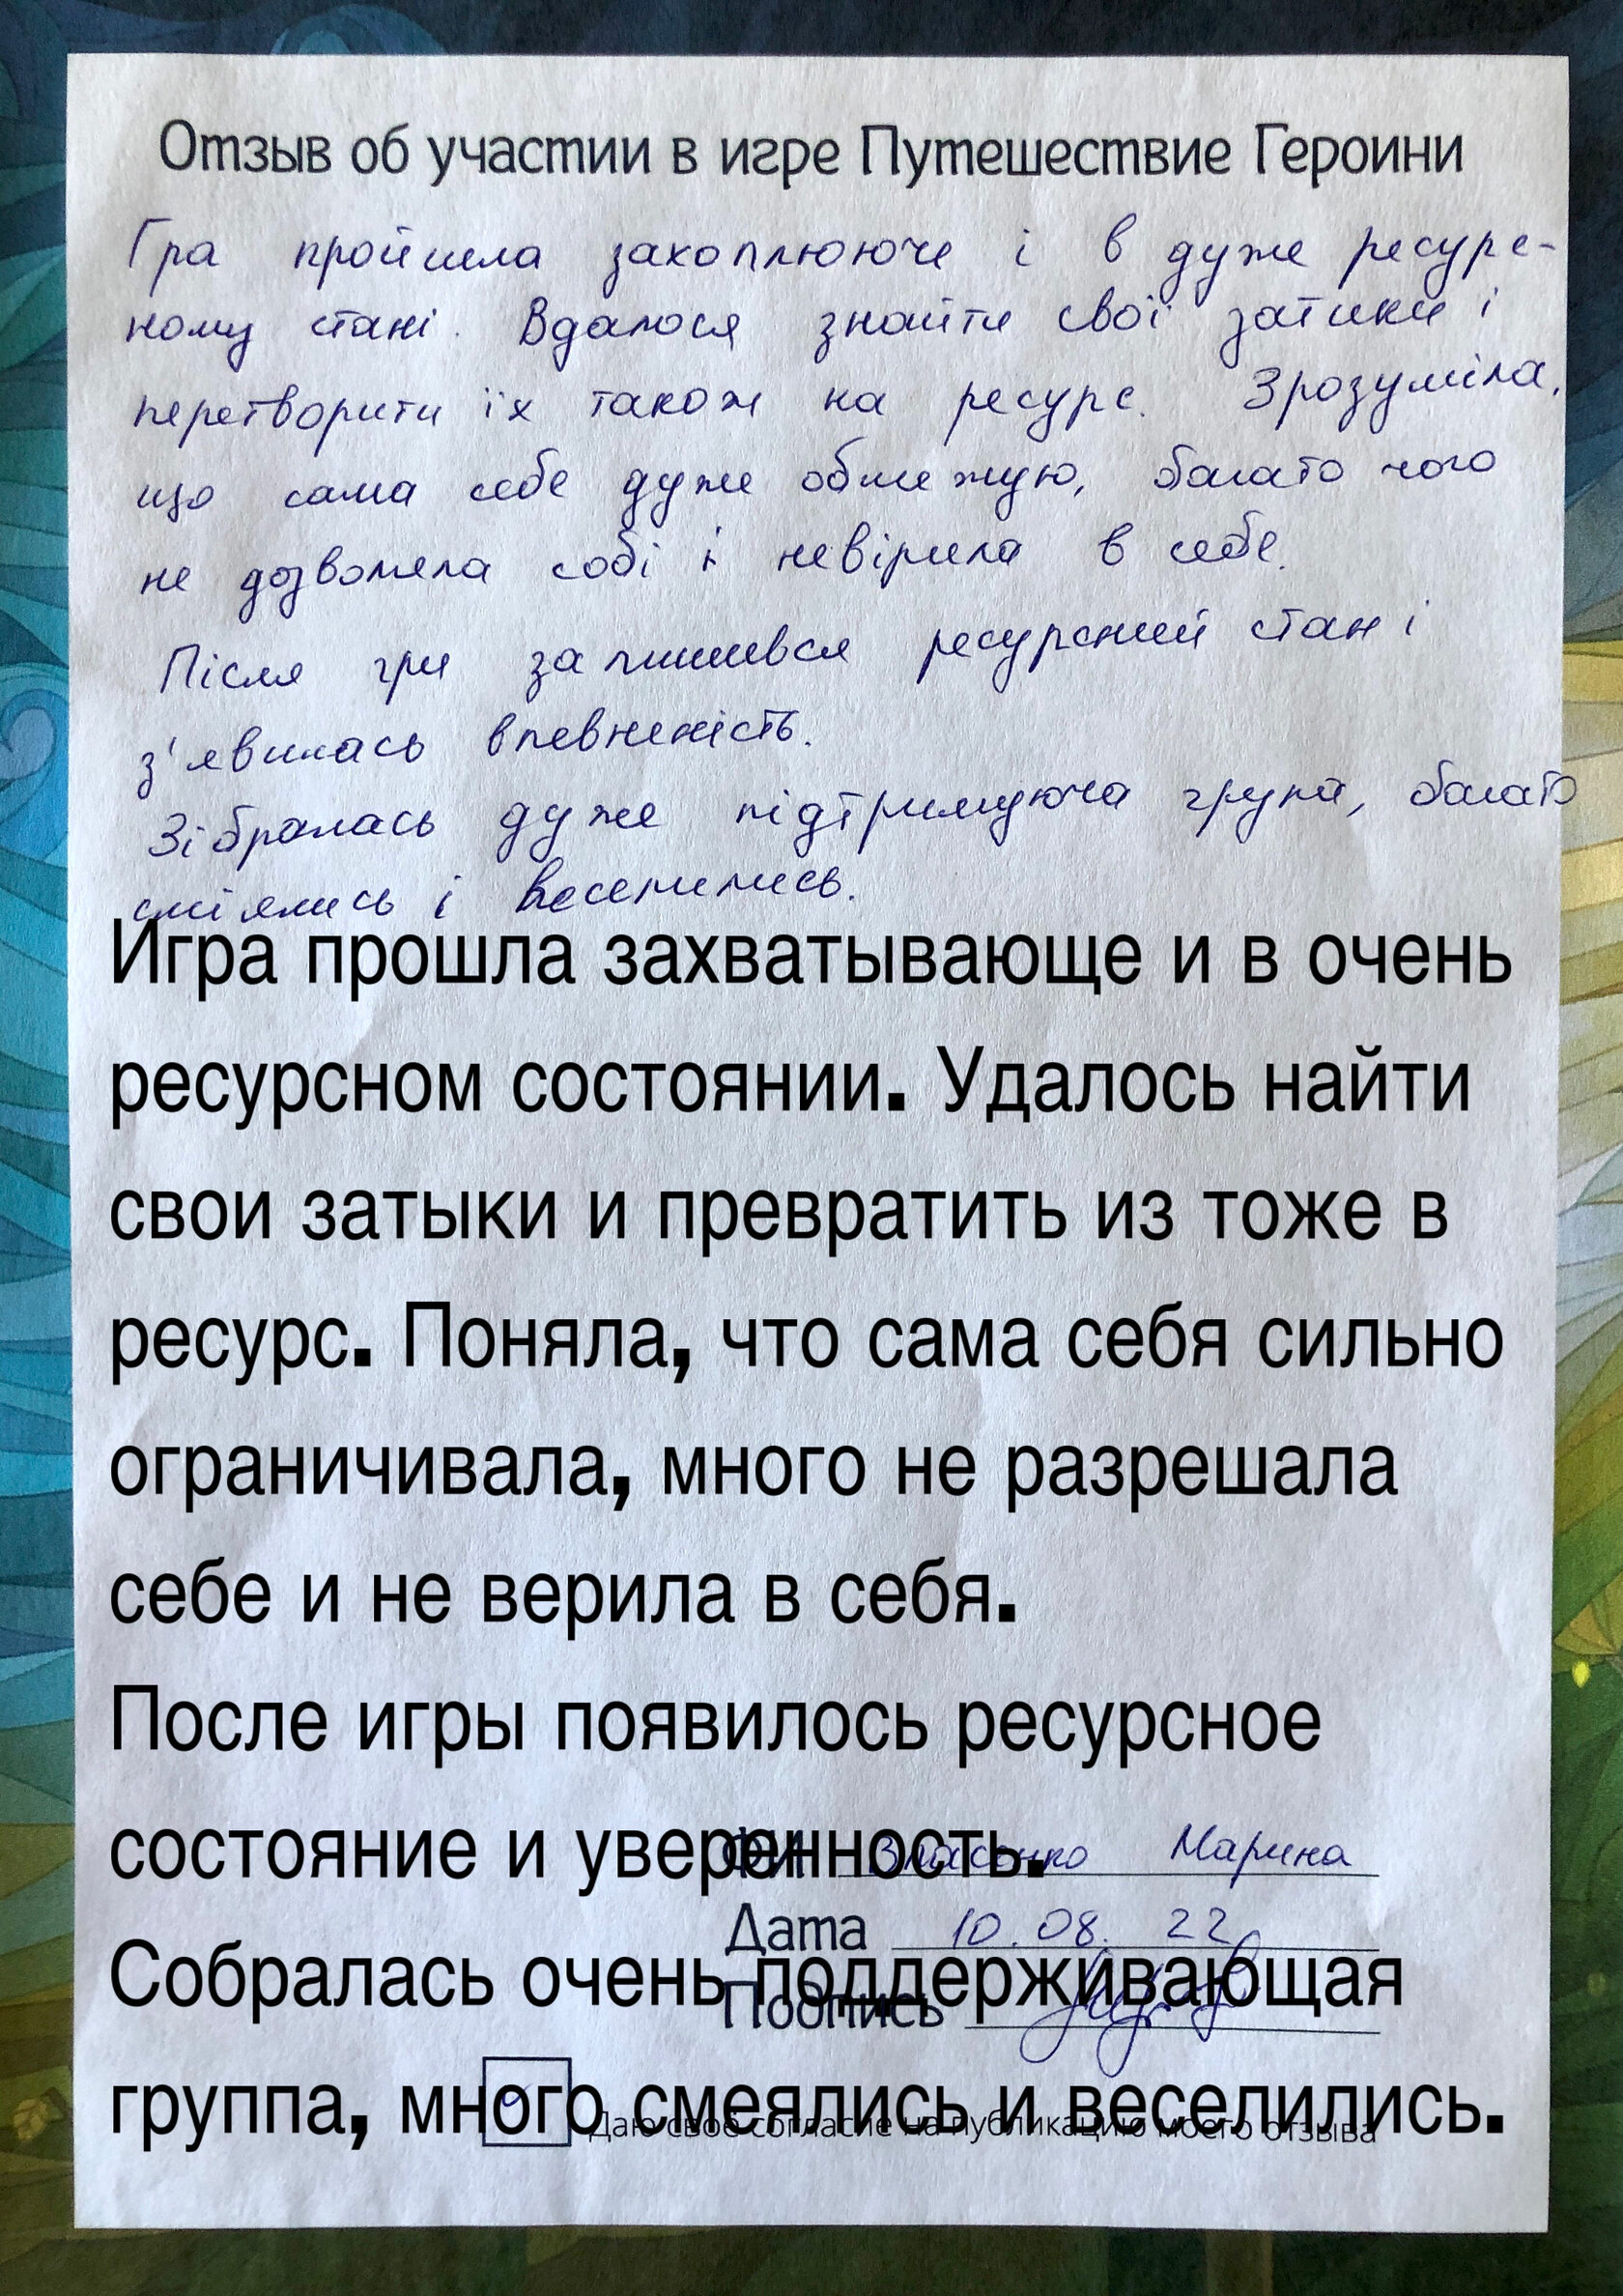 Отзыв об участии в игре Путешествие Героини
Гра пройшла захоплююче і в дуже ресурс-
ному стані. Вдалося знайти свої затики і
перетворити їх також на ресурс. Зрозуміла,
що сама себе дуже обмежую, багато чого
не дозволяла собі і невірила в себе.
Після гри залишився ресурсний стан і
з'явилась впевненість.
Зібралась дуже підтримуюча група, багато
сміялись і веселились.
Игра прошла захватывающе и в очень
ресурсном состоянии. Удалось найти
свои затыки и превратить из тоже в
ресурс. Поняла, что сама себя сильно
ограничивала, много не разрешала
себе и не верила в себя.
После игры появилось ресурсное
состояние и уверенность.
ФИ Власенко Марина
Дата 10.08.22
Собралась очень поддерживающая
Подпись
группа, много смеялись и веселились.
Даю свое согласие на публикацию моего отзыва